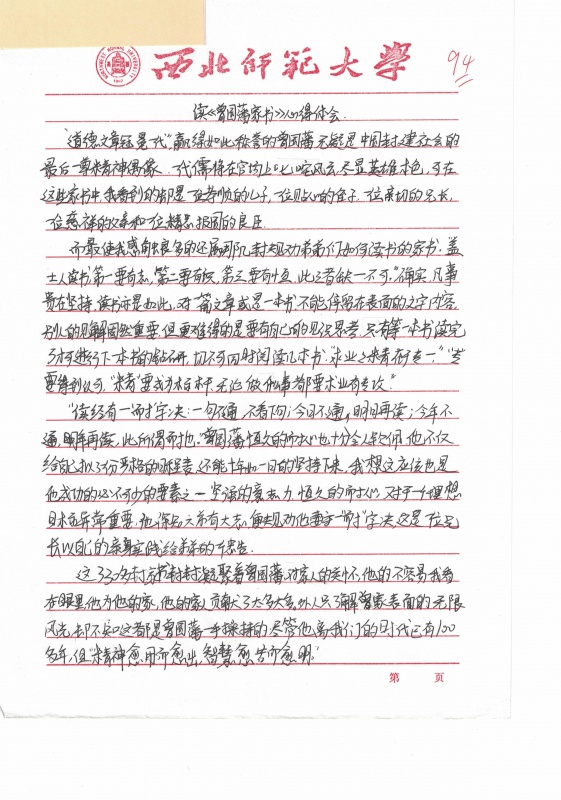 西北师范大学
94
读《曾国藩家书》心得体会.
"道德文章冠冕一代"赢得如此称誉的曾国藩无疑是中国封建社会的
最后一尊精神偶像. 一代儒将在官场上叱咤风云尽显英雄本色, 可在
这些家书中, 我看到的却是一位孝顺的儿子, 一位贴心的侄子, 一位亲切的兄长,
一位慈祥的父亲和一位精忠报国的良臣.
而最使我感触良多的还属那几封规劝弟弟们如何读书的家书. 盖
士人读书"第一要有志, 第二要有识, 第三要有恒, 此三者缺一不可." 确实, 凡事
贵在坚持, 读书亦是如此, 对一篇文章或是一本书, 不能停留在表面的文字内容.
别人的见解固然重要, 但更难得的是要有自己的见识思考, 只有等一本书读完
了才进行下一本书的钻研, 切不可同时间读几本书. "求业之精在于专一," "专
要得到认可, "精"要成为标杆 无论做何事都要术业有专攻."
"读经有一'耐'字诀: 一句不通, 不看下句; 今日不通, 明日再读; 今年不
通, 明年再读, 此所谓耐也." 曾国藩恒久的耐心也十分令人钦佩. 他不仅
给自己拟了份严格的课程表, 还能十年如一日的坚持下来, 我想这应该也是
他成功的必不可少的要素之一. 坚强的意志力 恒久的耐心 对于一个理想
目标异常重要, 他深知六弟有大志, 便规劝他要守"耐"字诀. 这是一位兄
长以自己的亲身实践给弟弟的忠告.
这了30多封家书封封凝聚着曾国藩对家人的关怀, 他的不容易我看
在眼里, 他为他的家, 他的家人贡献了太多太多, 外人只了解曾家表面的无限
风光, 却不知这都是曾国藩一手操持的. 尽管他离我们的时代已有100
多年, 但"精神愈用而愈出, 智慧愈苦而愈明."
第 页